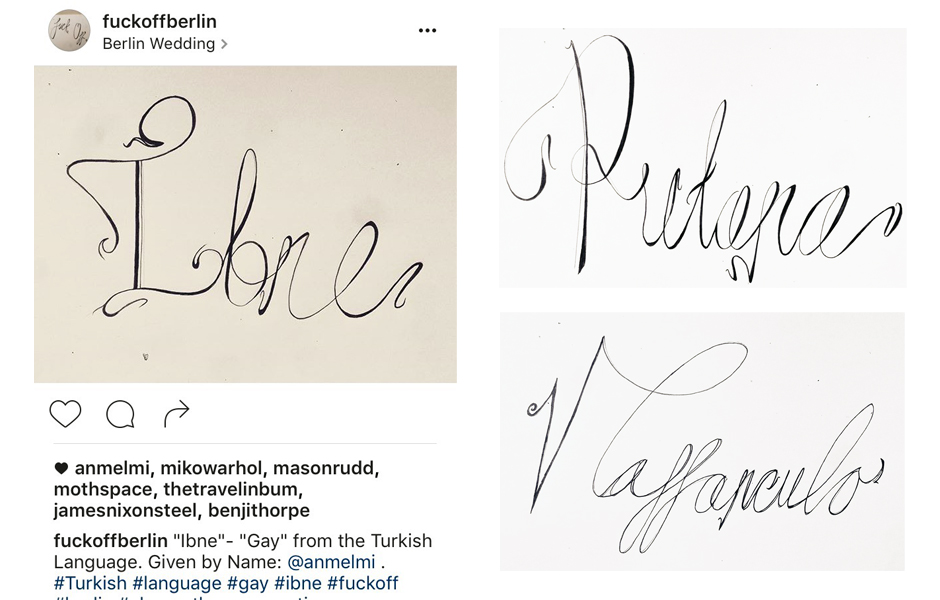 fuckoffberlin
Berlin Wedding
Ibne
anmelmi, mikowarhol, masonrudd,
mothspace, thetravelinbum,
jamesnixonsteel, benjithorpe
fuckoffberlin "Ibne"- "Gay" from the Turkish
Language. Given by Name: @anmelmi .
#Turkish #language #gay #ibne #fuckoff
Vaffanculo